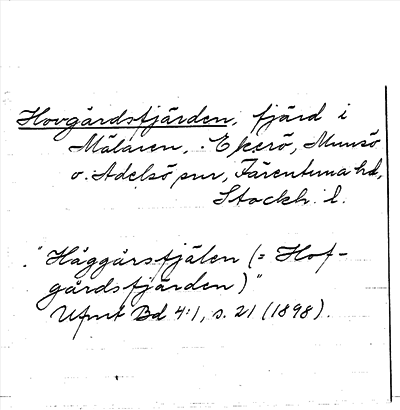 Hovgårdsfjärden, fjärd i
Mälaren, Ekerö, Munsö
o. Adelsö snr, Färentuna hd,
Stockh. l.
"Håggårsfjälen (= Hof-
gårdsfjärden)"
Ufmt Bd 4:1, s. 21 (1898).